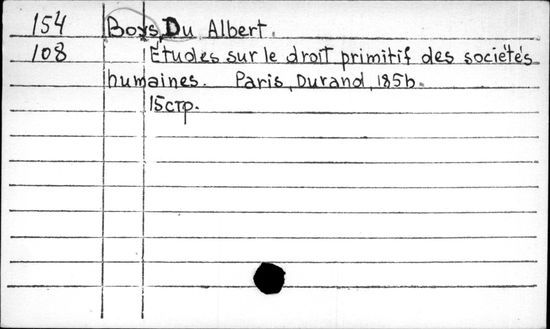 154 Boys, Du Albert.
108 Études sur le droit primitif des sociétés
humaines. Paris, Durand, 1856.
15стр.